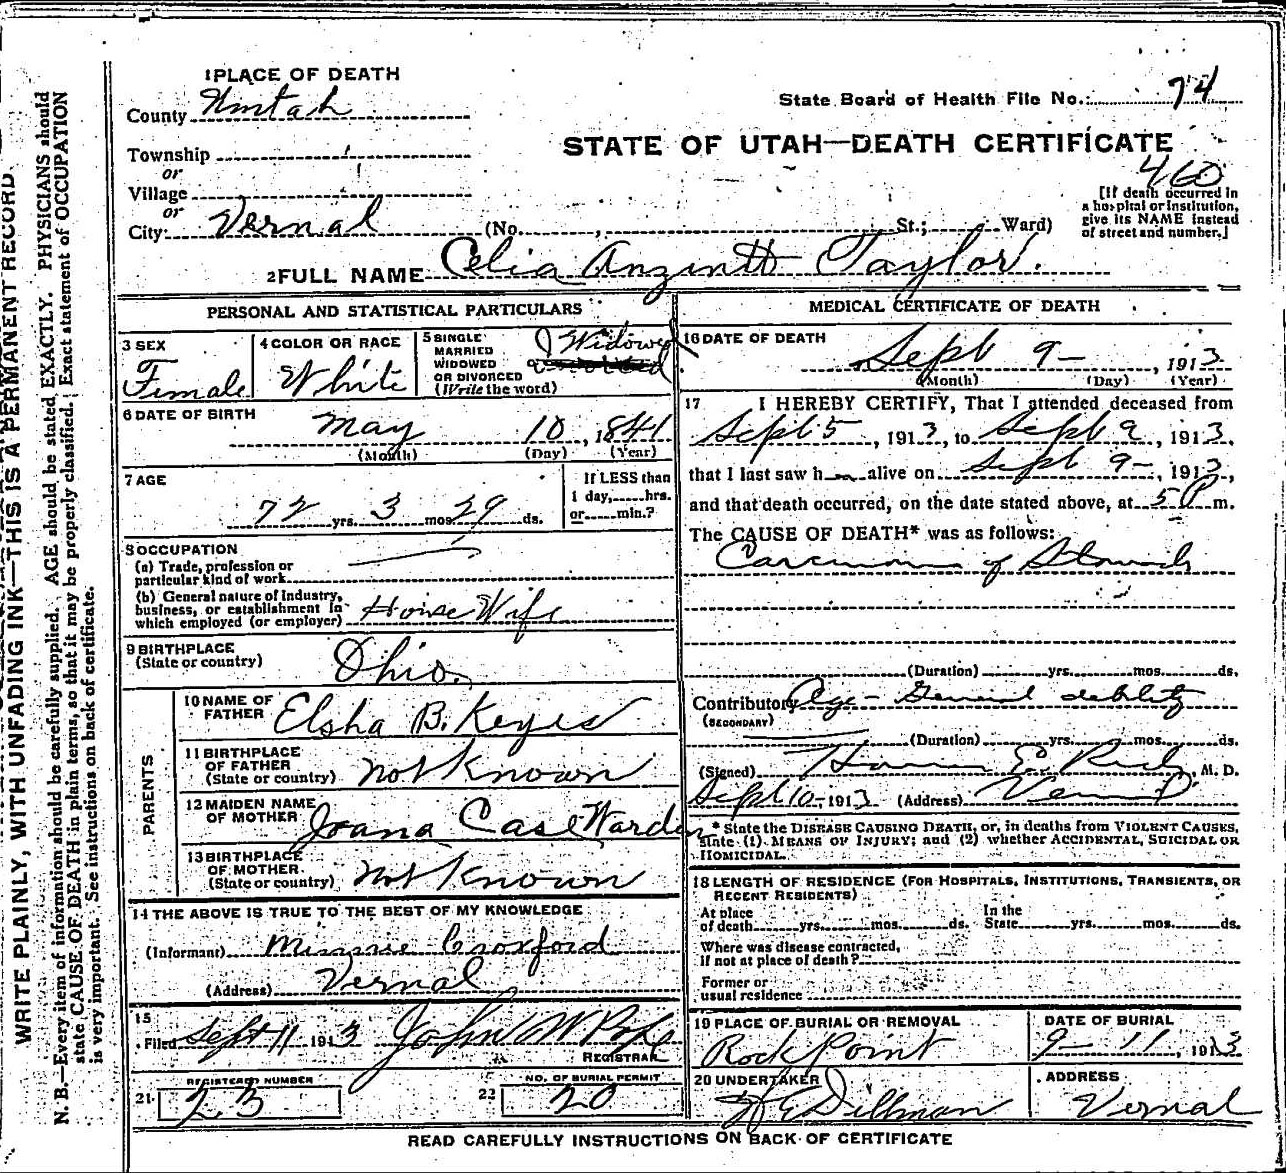 1 PLACE OF DEATH
County Uintah
Township
or
Village
or
City: Vernal (No. , St.; Ward)
State Board of Health File No.: 74
STATE OF UTAH—DEATH CERTIFICATE
460
[If death occurred in
a hospital or institution,
give its NAME instead
of street and number.]
2 FULL NAME Celia Anzinett Taylor.
PERSONAL AND STATISTICAL PARTICULARS
3 SEX
Female
4 COLOR OR RACE
White
5 SINGLE
MARRIED
WIDOWED
OR DIVORCED
(Write the word)
Widowed
6 DATE OF BIRTH
May 10, 1841
(Month) (Day) (Year)
7 AGE
72 yrs. 3 mos. 29 ds.
If LESS than
1 day, hrs.
or min.?
8 OCCUPATION
(a) Trade, profession or
particular kind of work
(b) General nature of industry,
business, or establishment in
which employed (or employer) House Wife
9 BIRTHPLACE
(State or country)
Ohio.
PARENTS
10 NAME OF
FATHER
Elsha B. Keyes
11 BIRTHPLACE
OF FATHER
(State or country)
not Known
12 MAIDEN NAME
OF MOTHER
Joana Case Warden
13 BIRTHPLACE
OF MOTHER
(State or country)
not Known
14 THE ABOVE IS TRUE TO THE BEST OF MY KNOWLEDGE
(Informant) Minnie Croxford
(Address) Vernal
15
Filed Sept 11 1913 John W Pope
REGISTRAR
REGISTERED NUMBER
21 23
NO. OF BURIAL PERMIT
22 20
MEDICAL CERTIFICATE OF DEATH
16 DATE OF DEATH
Sept 9-, 1913
(Month) (Day) (Year)
17 I HEREBY CERTIFY, That I attended deceased from
Sept 5, 1913, to Sept 9, 1913,
that I last saw h alive on Sept 9-, 1913,
and that death occurred, on the date stated above, at 5 P m.
The CAUSE OF DEATH* was as follows:
Carcinoma of Stomach
(Duration) yrs. mos. ds.
Contributory Age - General debility
(SECONDARY)
(Duration) yrs. mos. ds.
(Signed) E. Rich, M. D.
Sept 10- 1913 (Address) Vernal
* State the DISEASE CAUSING DEATH, or, in deaths from VIOLENT CAUSES,
state (1) MEANS OF INJURY; and (2) whether ACCIDENTAL, SUICIDAL OR
HOMICIDAL.
18 LENGTH OF RESIDENCE (FOR HOSPITALS, INSTITUTIONS, TRANSIENTS, OR
RECENT RESIDENTS)
At place
of death yrs. mos. ds. In the
State yrs. mos. ds.
Where was disease contracted,
if not at place of death?
Former or
usual residence
19 PLACE OF BURIAL OR REMOVAL
Rock Point
DATE OF BURIAL
9- 11, 1913
20 UNDERTAKER
W E Dillman
ADDRESS
Vernal
READ CAREFULLY INSTRUCTIONS ON BACK OF CERTIFICATE
WRITE PLAINLY, WITH UNFADING INK—THIS IS A PERMANENT RECORD.
N. B.—Every item of information should be carefully supplied. AGE should be stated EXACTLY. PHYSICIANS should
state CAUSE OF DEATH in plain terms, so that it may be properly classified. Exact statement of OCCUPATION
is very important. See instructions on back of certificate.